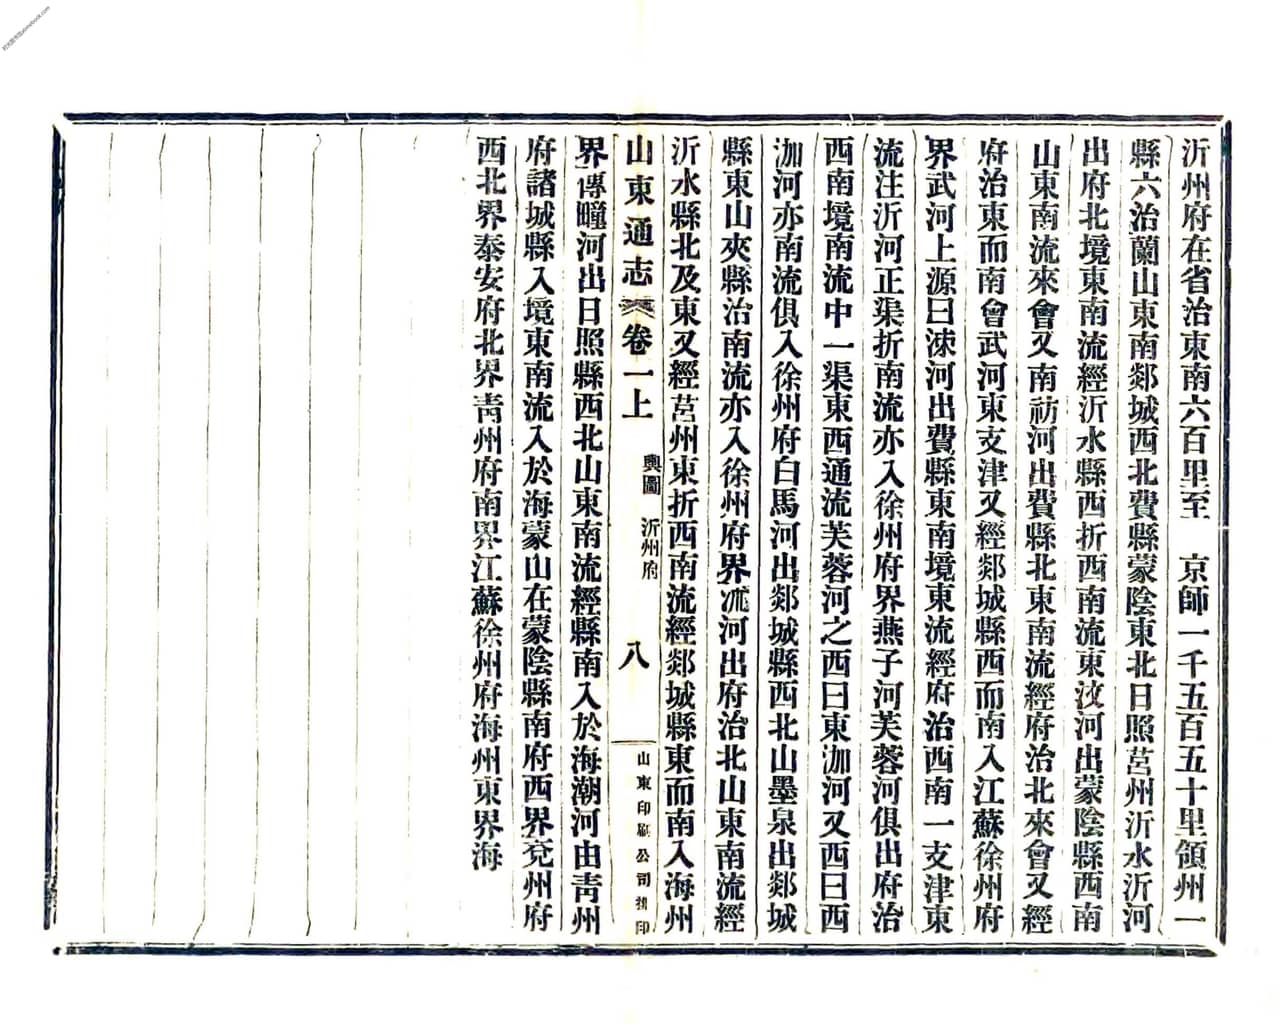 沂州府在省治東南六百里至　京師一千五百五十里領州一
縣六治蘭山東南郯城西北費縣蒙陰東北日照莒州沂水沂河
出府北境東南流經沂水縣西折西南流東汶河出蒙陰縣西南
山東南流來會又南祊河出費縣北東南流經府治北來會又經
府治東而南會武河東支津又經郯城縣西而南入江蘇徐州府
界武河上源曰涑河出費縣東南境東流經府治西南一支津東
流注沂河正渠折南流亦入徐州府界燕子河芙蓉河俱出府治
西南境南流中一渠東西通流芙蓉河之西曰東泇河又西曰西
泇河亦南流俱入徐州府白馬河出郯城縣西北山墨泉出郯城
縣東山夾縣治南流亦入徐州府界沭河出府治北山東南流經
沂水縣北及東又經莒州東折西南流經郯城縣東而南入海州
山東通志 卷一上 輿圖 沂州府 八 山東印刷公司排印
界傅疃河出日照縣西北山東南流經縣南入於海潮河由靑州
府諸城縣入境東南流入於海蒙山在蒙陰縣南府西界兗州府
西北界泰安府北界靑州府南界江蘇徐州府海州東界海